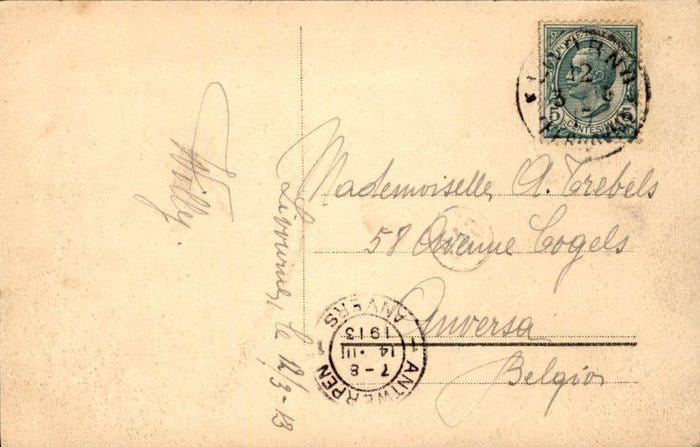 Willy.
Livourne, le 12/3-13
Mademoiselle A. Trebels
58 Avenue Cogels
Anversa
Belgio
LIVORNO
12
5 CENTESIMI 5
1 ANTWERPEN 1
7-8
14 · III
1913
ANVERS